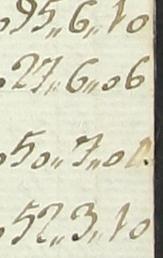 095„6„10
027„6„06
050„7„0
052„3„10